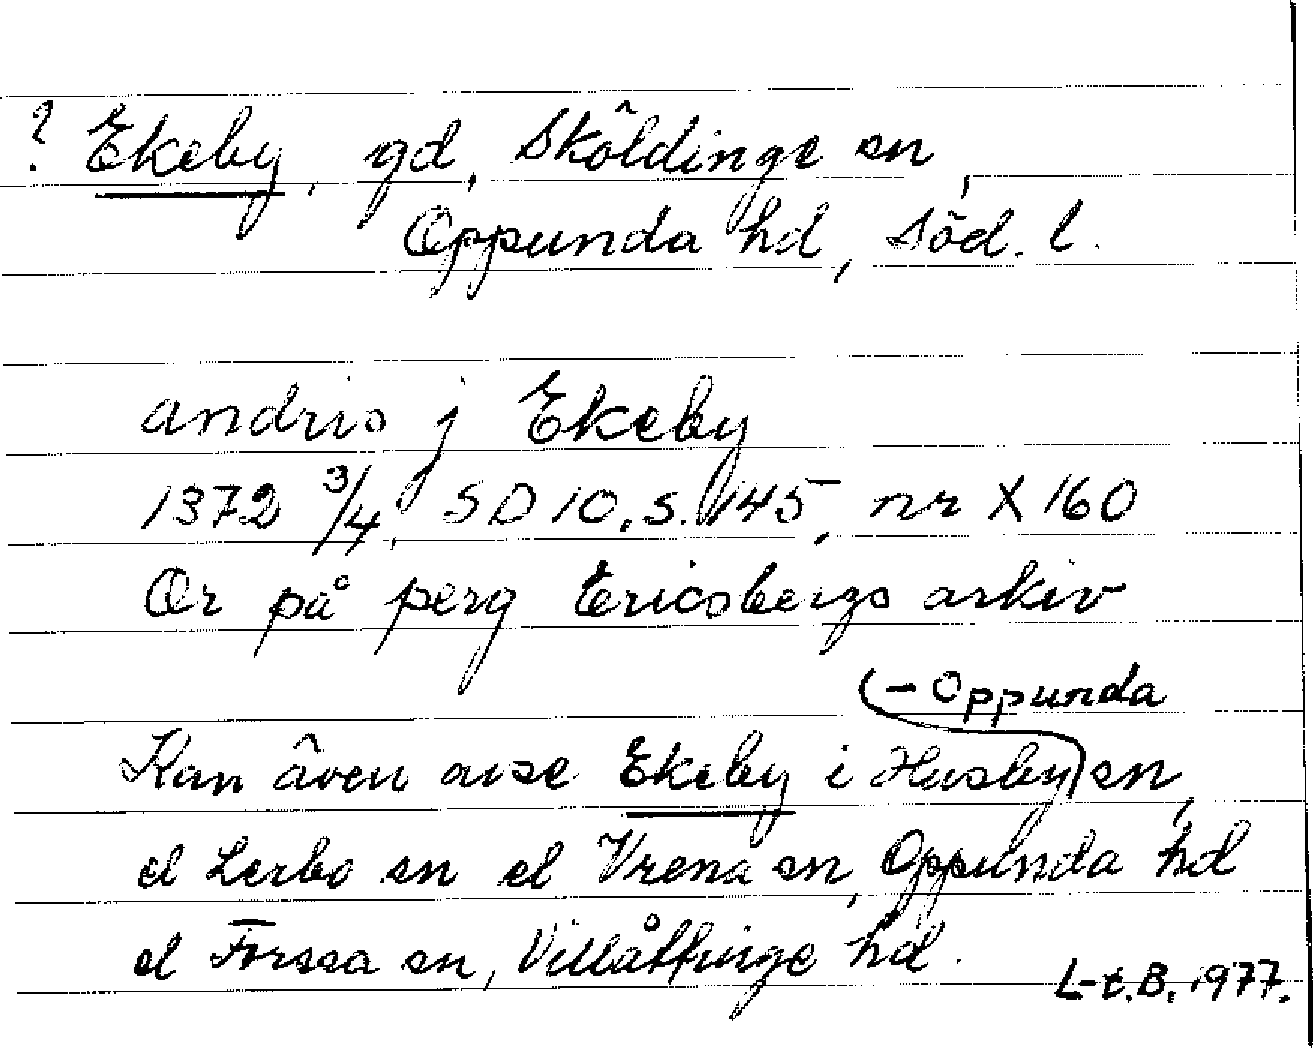 ? Ekeby, gd, Sköldinge sn,
Oppunda hd, Söd. l.
andris j Ekeby
1372 3/4, SD 10, s. 145, nr X 160
Or på perg Ericsbergs arkiv
Kan även avse Ekeby i Husby - Oppunda sn,
el Lerbo sn el Vrena sn, Oppunda hd
el Forssa sn, Villåttinge hd.
L-t.B. 1977.